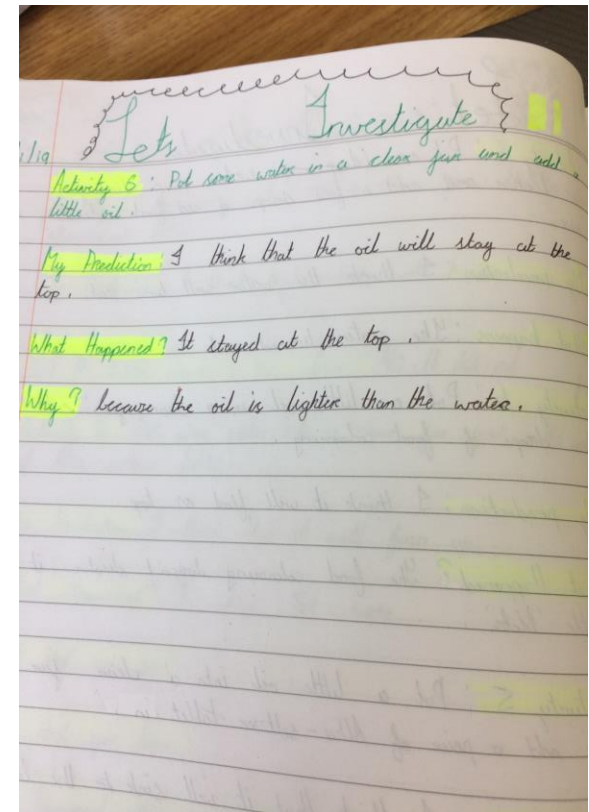 Lets Investigate
1/19
Activity 6 : Pot some water in a clear jar and add a
little oil.
My Prediction: I think that the oil will stay at the
top.
What Happened? It stayed at the top.
Why? because the oil is lighter than the water.